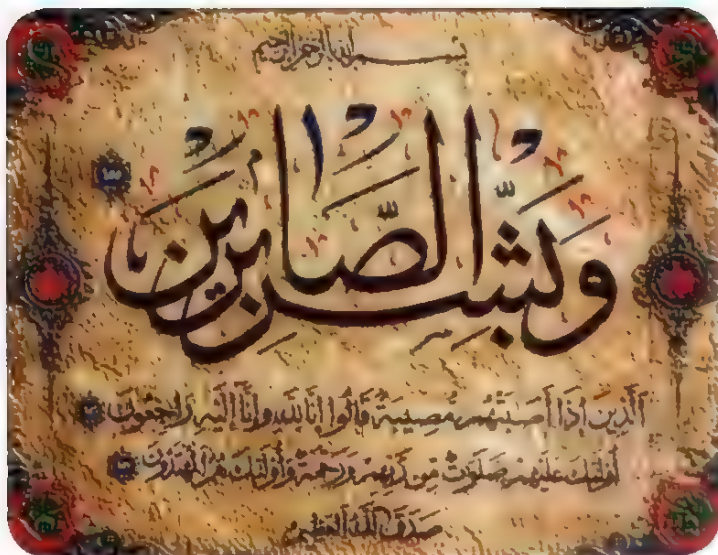 بسم الله الرحمن الرحيم
وبشر الصابرين
الذين إذا أصبتهم مصيبة قالوا إنا لله وإنا إليه راجعون
أولئك عليهم صلوت من ربهم ورحمة وأولئك هم المهتدون
صدق الله العظيم